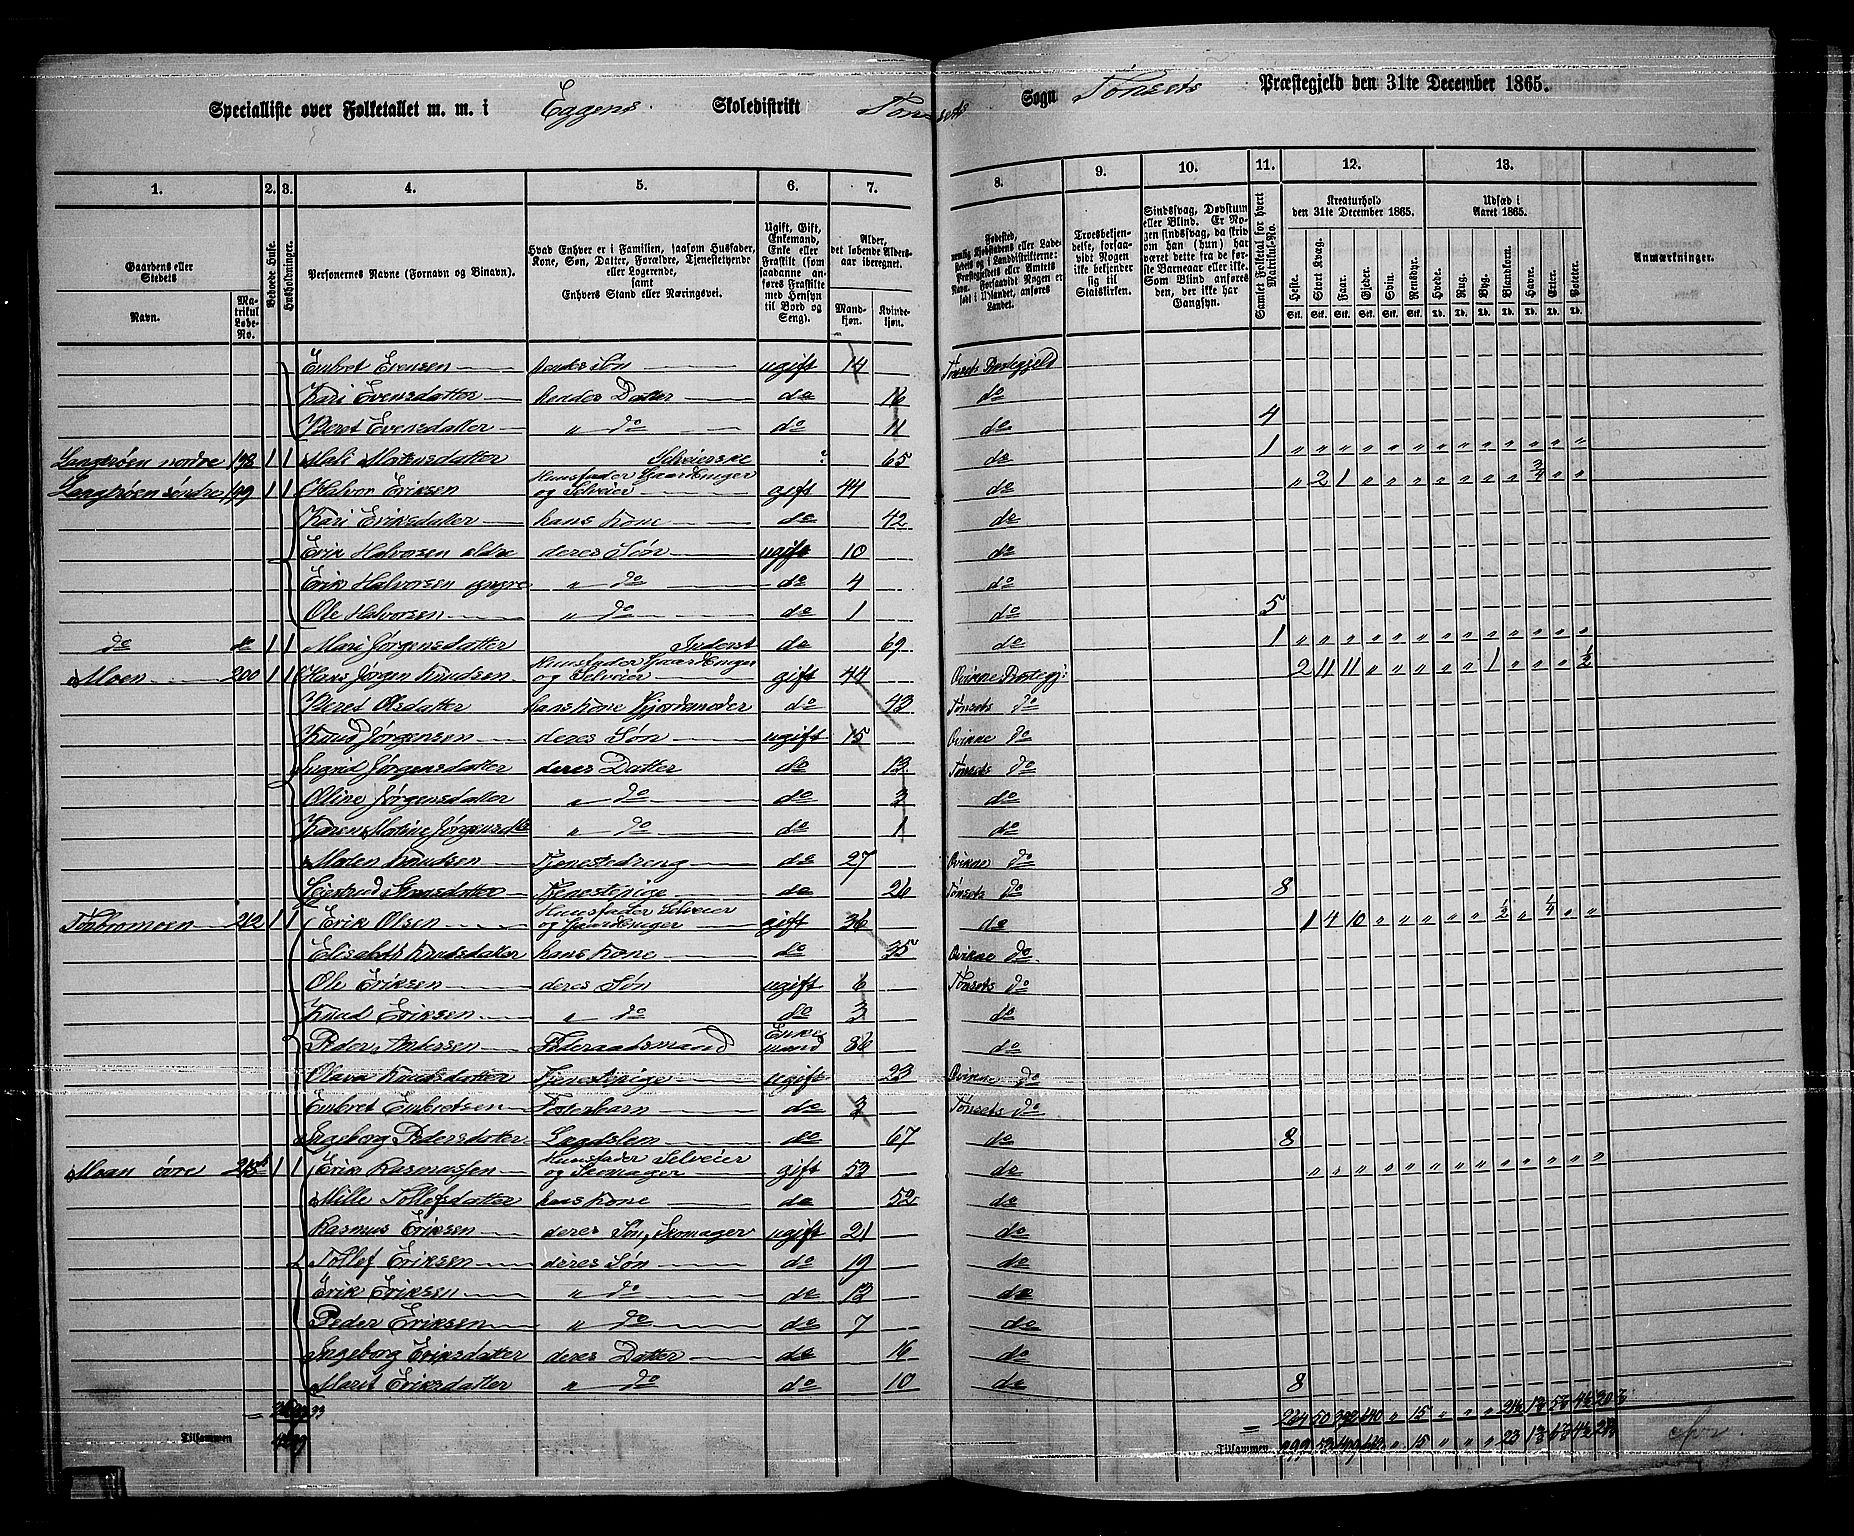 Specialliste over Folketallet m. m. i Eggens Skoledistrikt Tönsets Sogn Tönsets Præstegjeld den 31te December 1865.
1. 2. 3. 4. 5. 6. 7. 8. 9. 10. 11. 12. 13.
Gaardens eller Stedets
Navn. Matrikul Løbe-No.
Beboede Huse.
Husholdninger.
Personernes Navne (Fornavn og Binavn).
Hvad Enhver er i Familien, saasom Husfader, Kone, Søn, Datter, Forældre, Tjenestetyende eller Logerende, samt Enhvers Stand eller Næringsvei.
Ugift, Gift, Enkemand, Enke eller Fraskilt (som saadanne anføres Fraskilte med Hensyn til Bord og Seng).
Alder, det løbende Aldersaar iberegnet.
Mandkjøn. Kvindekjøn.
Fødested,
Troesbekjendelse, forsaavidt Nogen ikke bekjender sig til Statskirken.
Sindssvag, Døvstum eller Blind. Er Nogen sindssvag, da skrives om han (hun) har været dette fra de første Barneaar eller ikke. Som Blind anføres den, der ikke har Gangsyn.
Samlet Folketal for hvert Matrikul-No.
Kreaturhold den 31te December 1865.
Heste. Stort Kvæg. Faar. Gjeder. Svin. Rensdyr.
Udsæd i Aaret 1865.
Hvede. Rug. Byg. Blandkorn. Havre. Erter. Poteter.
Anmærkninger.
Embret Evensen hendes Sön ugift 14 Tönsets Præstegjeld
Kari Evensdatter hendes Datter do 16 do
Beret Evensdatter " do do 11 do 4
Langröen nordre 198 1 1 Mali Mortensdatter Selveierske ? 65 do 1 " " " " " " " " " " " " "
Langröen söndre 199 1 1 Halvor Eriksen Huusfader Gaardbruger og Selveier gift 44 do " 2 1 " " " " " " " 3/4 " "
Kari Eriksdatter hans Kone do 42 do
Erik Halvorsen eldre deres Sön ugift 10 do
Erik Halvorsen yngre " do do 4 do
Ole Halvorsen " do do 1 do 5
do do 1 1 Mari Jörgensdatter Inderst do 69 do 1 " " " " " " " " " " " " "
Moen 200 1 1 Hans Jörgen Knudsen Huusfader Gaardbruger og Selveier gift 44 Qvikne Præstegj: 2 11 11 " " " " " 1 " " " 1/2
Beret Olsdatter hans Kone Gjordmoder do 43 Tönsets do
Knud Jörgensen deres Sön ugift 15 Qvikne do
Sigrid Jörgensdatter deres Datter do 13 Tönsets do
Oline Jörgensdatter " do do 3 do
Karen Maline Jörgensdtr " do do 1 do
Morten Knudsen Tjenestedreng do 27 Qvikne do
Gjertrud Simensdatter Tjenestepige do 26 Tönsets do 8
Tönbromoen 212 1 1 Erik Olsen Huusfader Selveier og Gaardbruger gift 36 do 1 4 10 " " " " " 1/2 " 1/4 " "
Elisabeth Knudsdatter hans Kone do 35 Qvikne do
Ole Eriksen deres Sön ugift 6 Tönsets do
Knud Eriksen " do do 3 do
Peder Andersen Föderaadsmand Enkemand 86 do
Olava Knudsdatter Tjenestepige ugift 23 Qvikne do
Embret Embretsen Fosterbarn do 3 Tönsets do
Ingeborg Pedersdatter Lægdslem do 67 do 8
Moan övre 1 1 Erik Rasmussen Huusfader Selveier og Skomager gift 53 do " " " " " " " " " " " " "
Mille Tollefsdatter hans Kone do 52 do
Rasmus Eriksen deres Sön, Skomager ugift 21 do
Tollef Eriksen deres Sön do 19 do
Erik Eriksen " do do 13 do
Peder Eriksen " do do 7 do
Ingeborg Eriksdatter deres Datter do 16 do
Marit Eriksdatter " do do 10 do 8
Tilsammen
Tilsammen